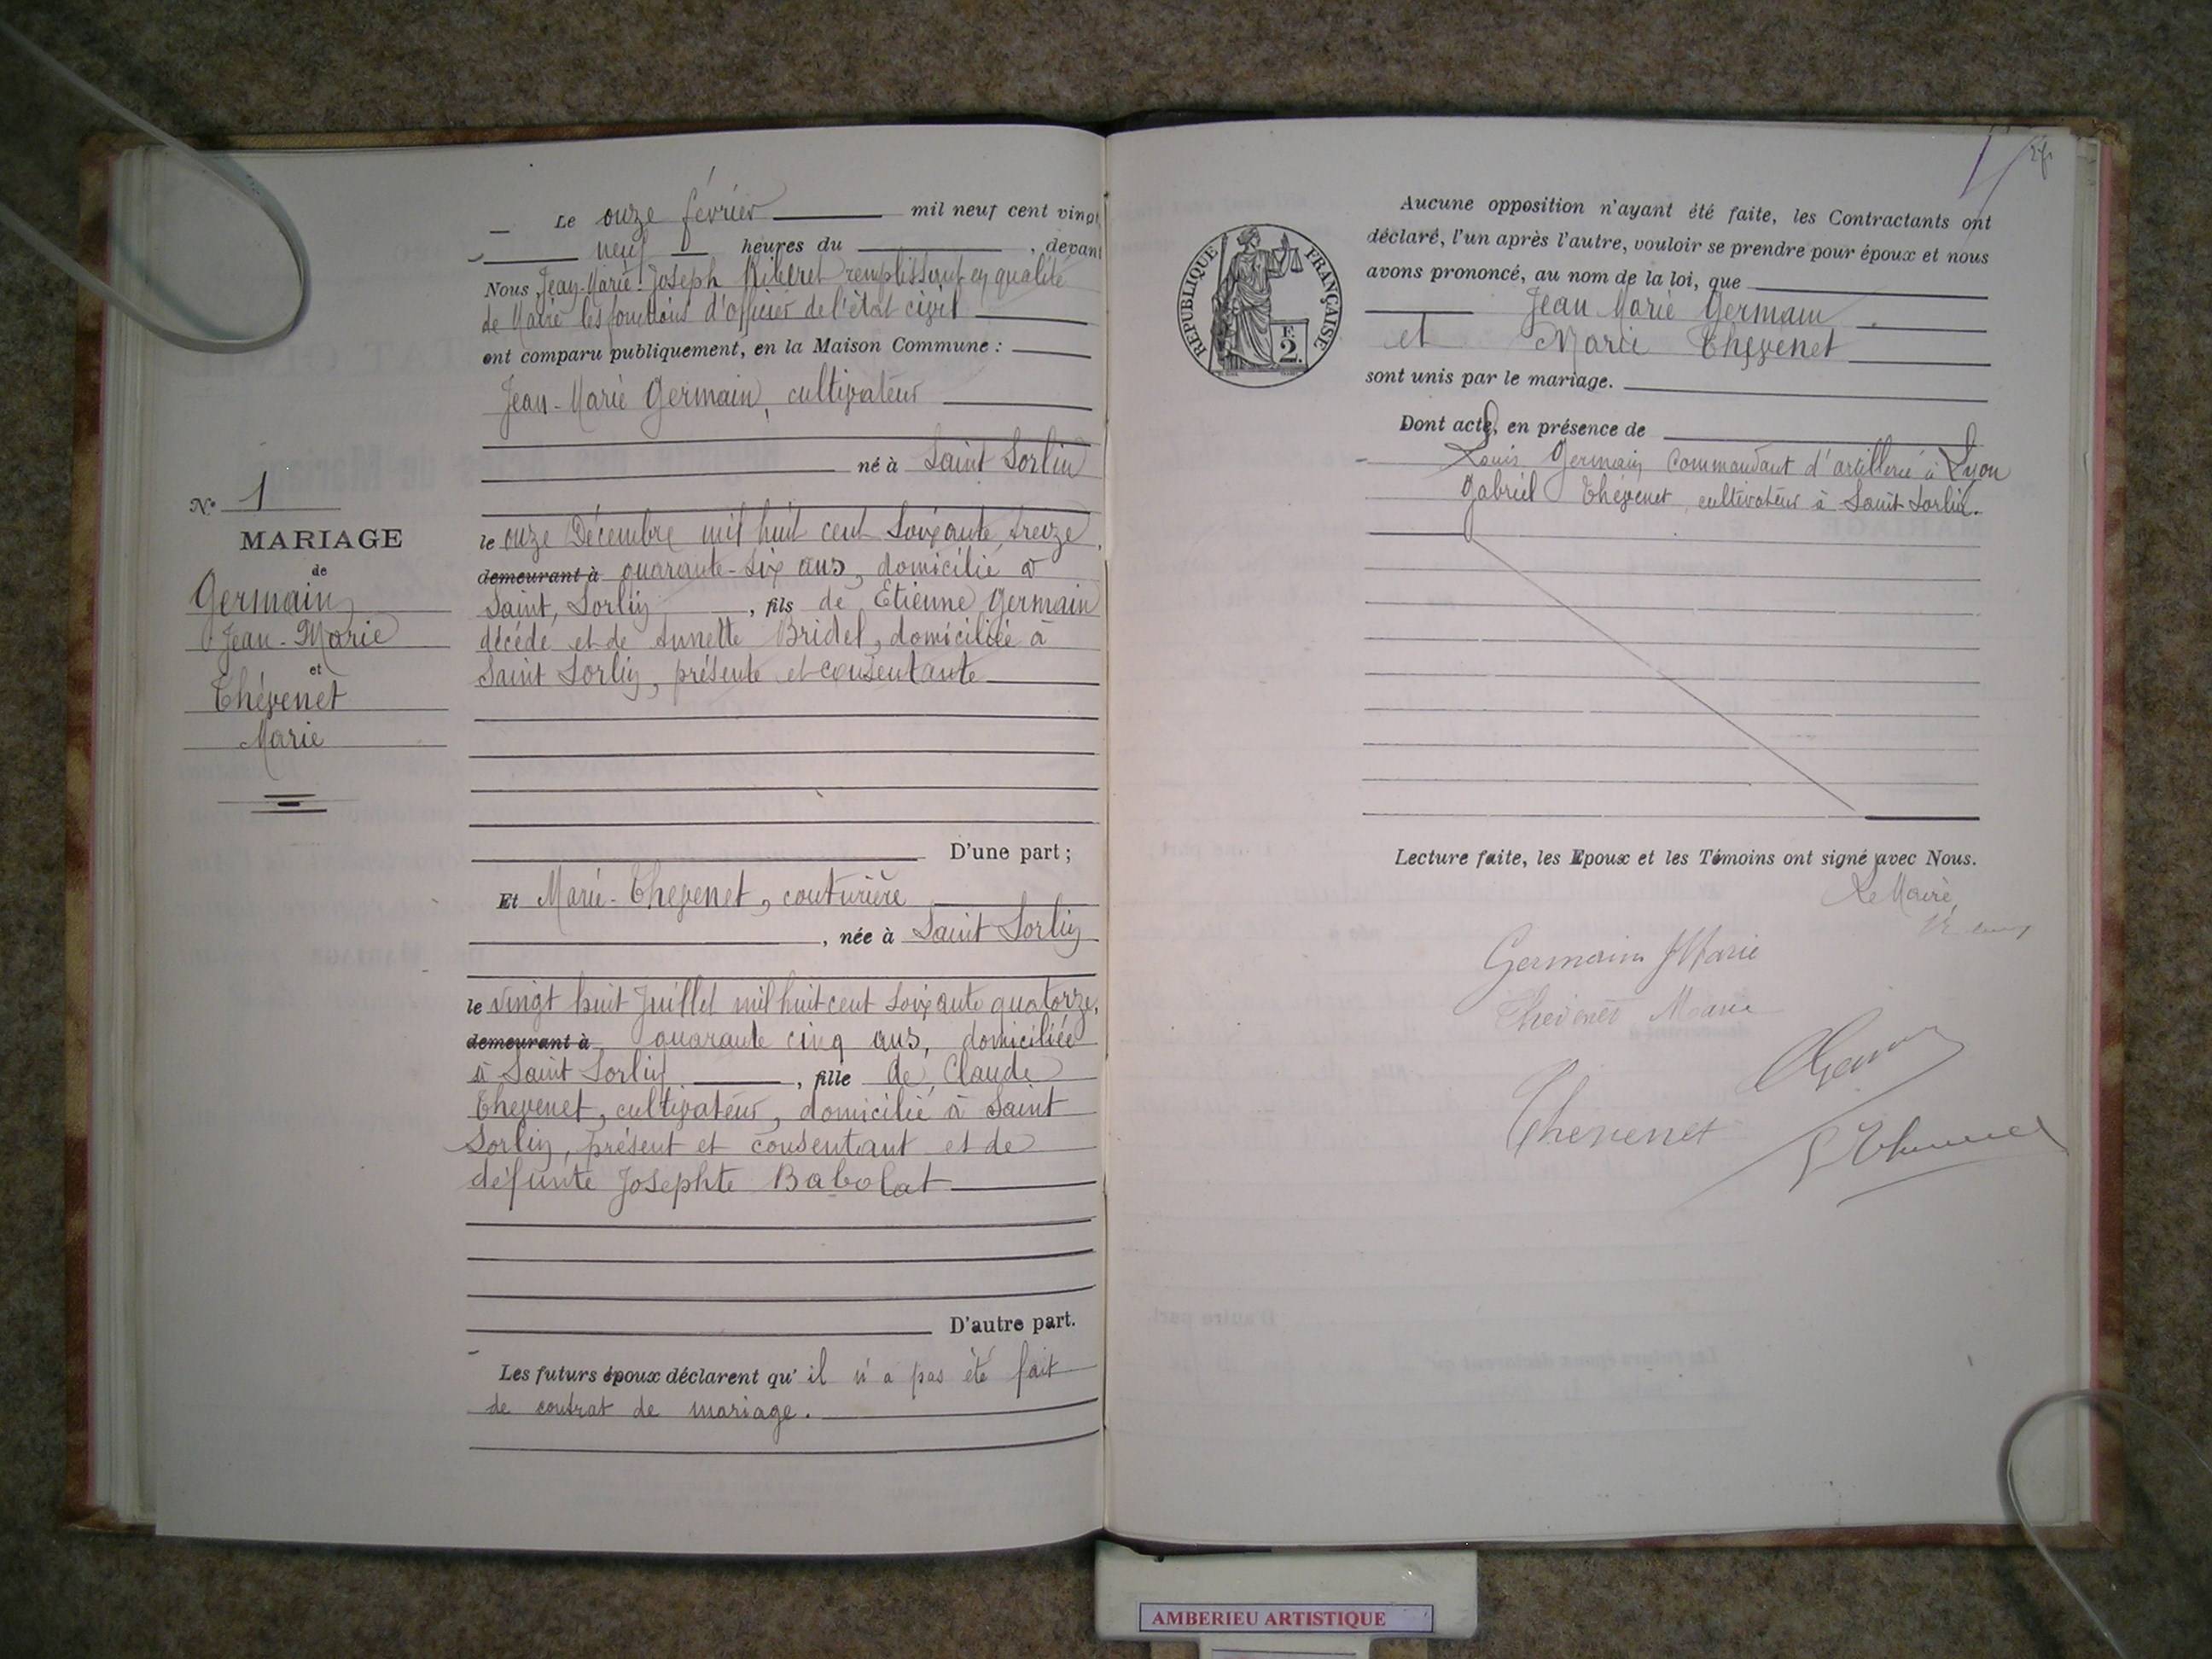 Le onze février mil neuf cent vingt
neuf heures du , devant
Nous Jean-Marie-Joseph remplissant en qualité
de Maire les fonctions d'officier de l'état civil
ont comparu publiquement, en la Maison Commune :
Jean-Marie Germain, cultivateur
né à Saint Sorlin
N° 1
MARIAGE
de
Germain
Jean-Marie
et
Thévenet
Marie
le onze Décembre mil huit cent soixante treize,
demeurant à quarante-six ans, domicilié à
Saint Sorlin , fils de Etienne Germain
décédé et de Annette Bridel, domiciliée à
Saint Sorlin, présente et consentante
D'une part ;
Et Marie Thevenet, couturière
, née à Saint Sorlin
le vingt huit Juillet mil huit cent soixante quatorze,
demeurant à quarante cinq ans, domiciliée
à Saint Sorlin , fille de Claude
Thevenet, cultivateur, domicilié à Saint
Sorlin, présent et consentant et de
défunte Josephte Babolat
D'autre part.
Les futurs époux déclarent qu'il n'a pas été fait
de contrat de mariage.
RÉPUBLIQUE FRANÇAISE
2 F.
Aucune opposition n'ayant été faite, les Contractants ont
déclaré, l'un après l'autre, vouloir se prendre pour époux et nous
avons prononcé, au nom de la loi, que
Jean Marie Germain
et Marie Thevenet
sont unis par le mariage.
Dont acte, en présence de
Louis Germain commandant d'artillerie à Lyon
Gabriel Thévenet, cultivateur à Saint Sorlin.
Lecture faite, les Epoux et les Témoins ont signé avec Nous.
Le Maire,
Germain JMarie
Thévenet Marie
Thevenet
AMBERIEU ARTISTIQUE